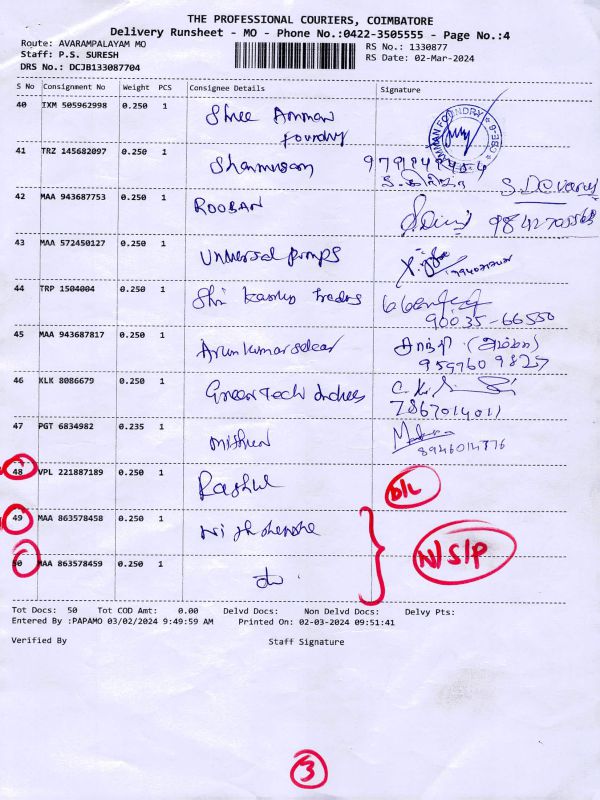 THE PROFESSIONAL COURIERS, COIMBATORE
Delivery Runsheet - MO - Phone No.:0422-3505555 - Page No.:4
Route: AVARAMPALAYAM MO
RS No.: 1330877
Staff: P.S. SURESH
RS Date: 02-Mar-2024
DRS No.: DCJB133087704
S No Consignment No Weight PCS Consignee Details Signature
40 IXM 505962998 0.250 1 Shree Amman
foundry
41 TRZ 145682097 0.250 1 Shanmugam
42 MAA 943687753 0.250 1 ROOBAN
43 MAA 572450127 0.250 1 Universal pumps
44 TRP 1504004 0.250 1 Shri traders
90035-66550
45 MAA 943687817 0.250 1 Arunkumar
959760 9827
46 KLK 8086679 0.250 1 Green Tech
7867014011
47 PGT 6834982 0.235 1 Mithun
48 VPL 221887189 0.250 1 D/L
49 MAA 863578458 0.250 1
N/S/P
50 MAA 863578459 0.250 1 do
Tot Docs: 50 Tot COD Amt: 0.00 Delvd Docs: Non Delvd Docs: Delvy Pts:
Entered By :PAPAMO 03/02/2024 9:49:59 AM Printed On: 02-03-2024 09:51:41
Verified By Staff Signature
3